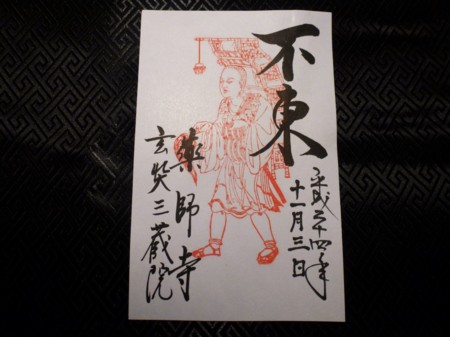 不東
平成二十四年
十一月三日
薬師寺
玄奘三蔵院